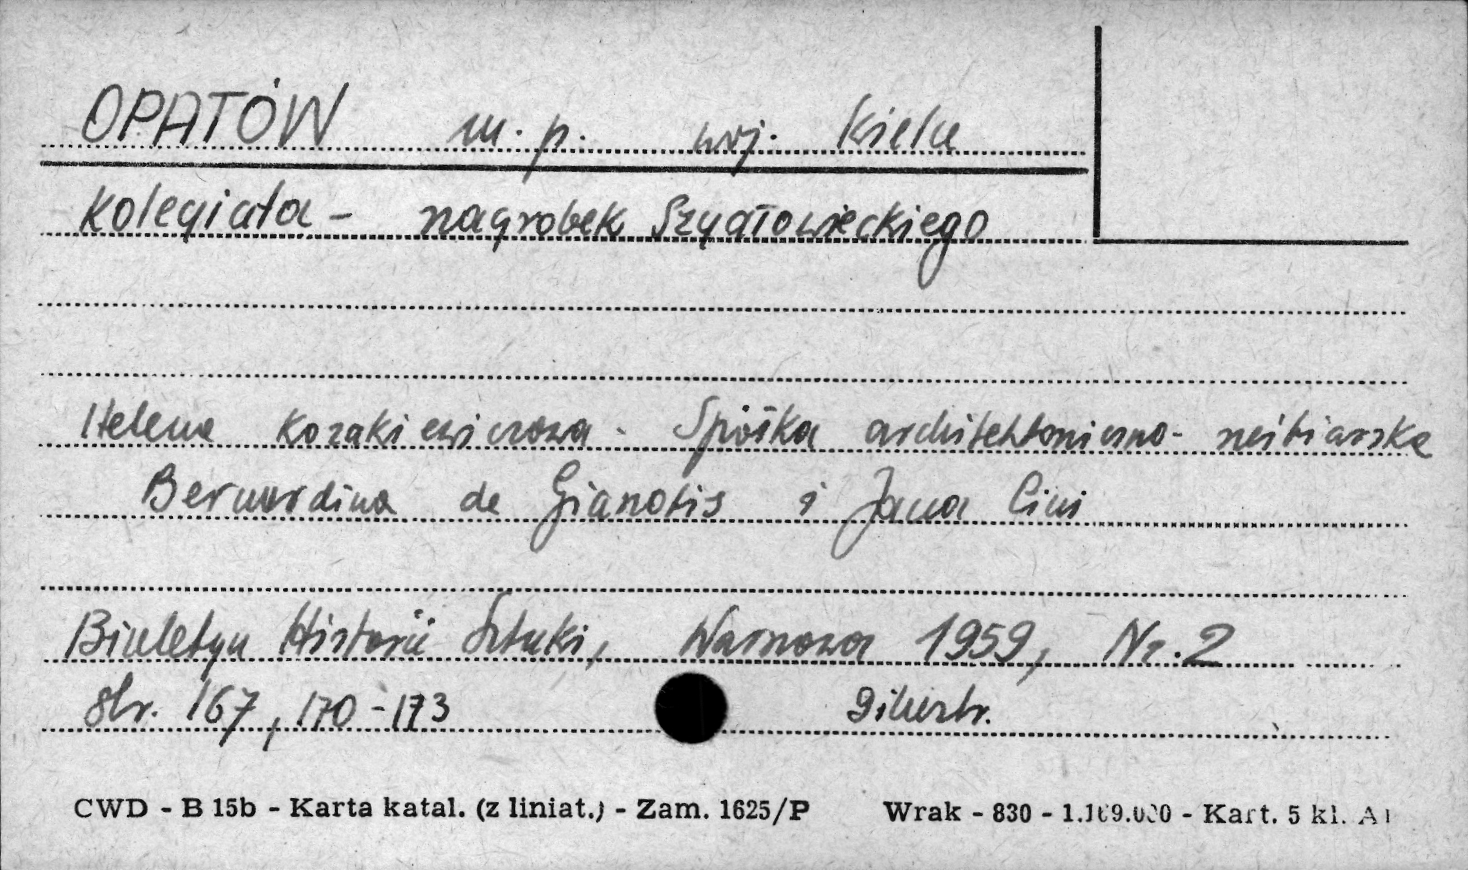 OPATÓW m. p. woj. Kielce
Kolegiata - nagrobek Szydłowieckiego
Helena Kozakiewiczowa - Spółka architektoniczno - rzeźbiarska
Bernardina de Gianotis i Jana Cini
Biuletyn Historii Sztuki, Warszawa 1959, Nr. 2
str. 167, 170-173 9 ilustr.
CWD - B 15b - Karta katal. (z liniat.) - Zam. 1625/P Wrak - 830 - 1.169.000 - Kart. 5 kl.